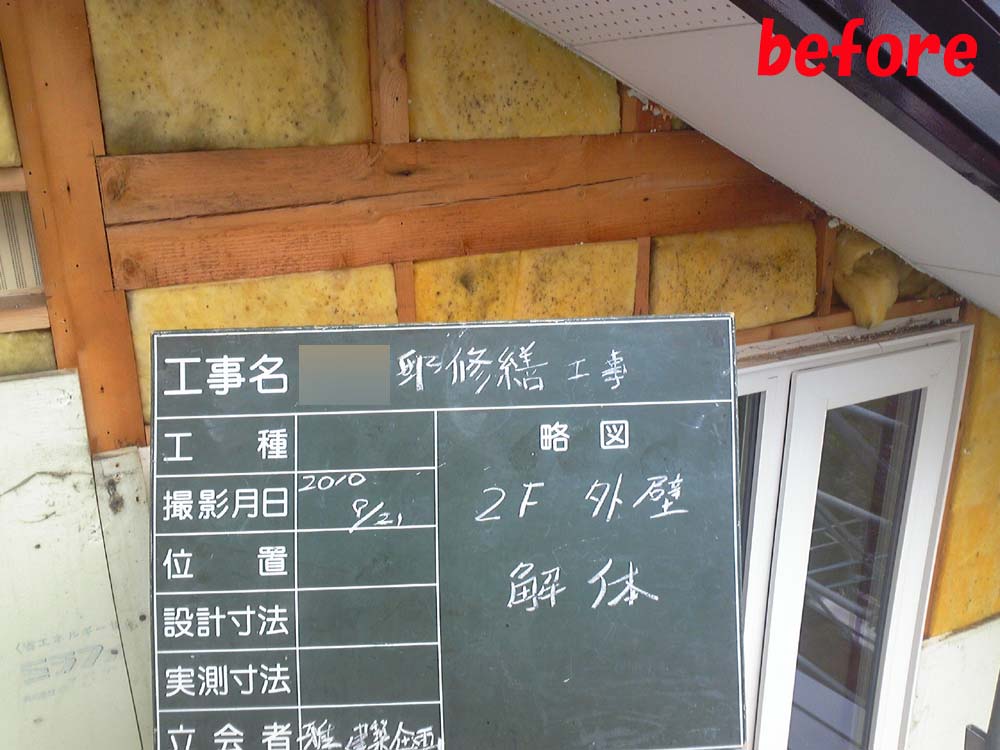 before
工事名 邸修繕工事
工種
略図
撮影月日 2010 9/21
2F 外壁
位置
解体
設計寸法
実測寸法
立会者 雅建築企画
省エネルギー